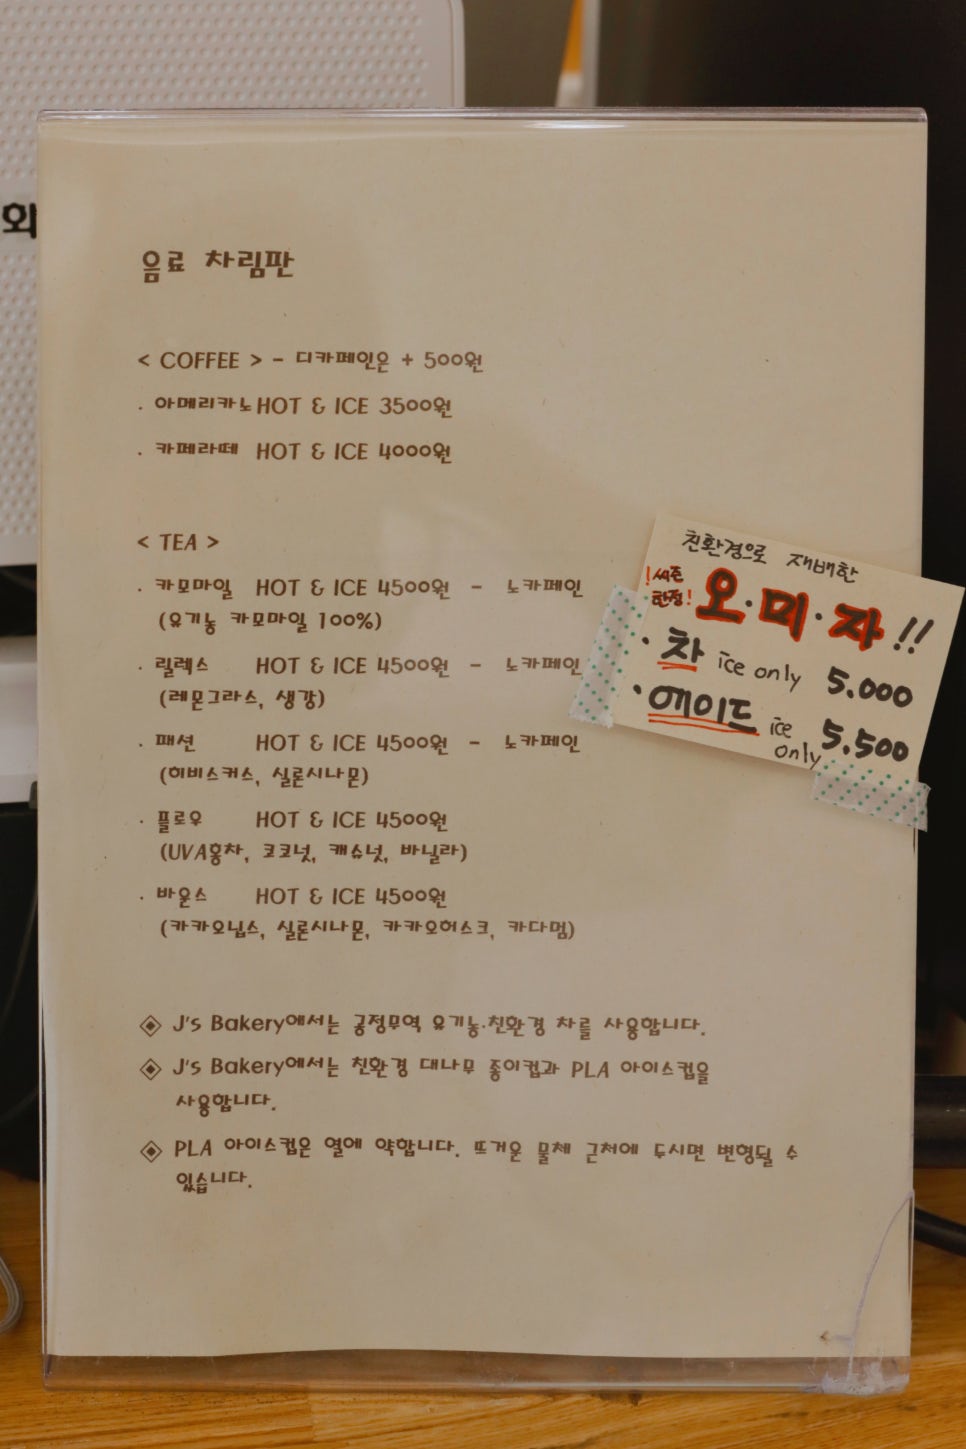 회
음료 차림판
< COFFEE > - 디카페인은 + 500원
· 아메리카노 HOT & ICE 3500원
· 카페라떼 HOT & ICE 4000원
< TEA >
· 카모마일 HOT & ICE 4500원 - 노카페인
(유기농 카모마일 100%)
· 릴렉스 HOT & ICE 4500원 - 노카페인
(레몬그라스, 생강)
· 패션 HOT & ICE 4500원 - 노카페인
(히비스커스, 실론시나몬)
· 플로우 HOT & ICE 4500원
(UVA홍차, 코코넛, 캐슈넛, 바닐라)
· 바운스 HOT & ICE 4500원
(카카오닙스, 실론시나몬, 카카오허스크, 카다멈)
◈ J's Bakery에서는 공정무역 유기농·친환경 차를 사용합니다.
◈ J's Bakery에서는 친환경 대나무 종이컵과 PLA 아이스컵을
사용합니다.
◈ PLA 아이스컵은 열에 약합니다. 뜨거운 물체 근처에 두시면 변형될 수
있습니다.
친환경으로 재배한
!씨즌
한정!
오·미·자!!
· 차 ice only 5.000
· 에이드 ice
only 5.500